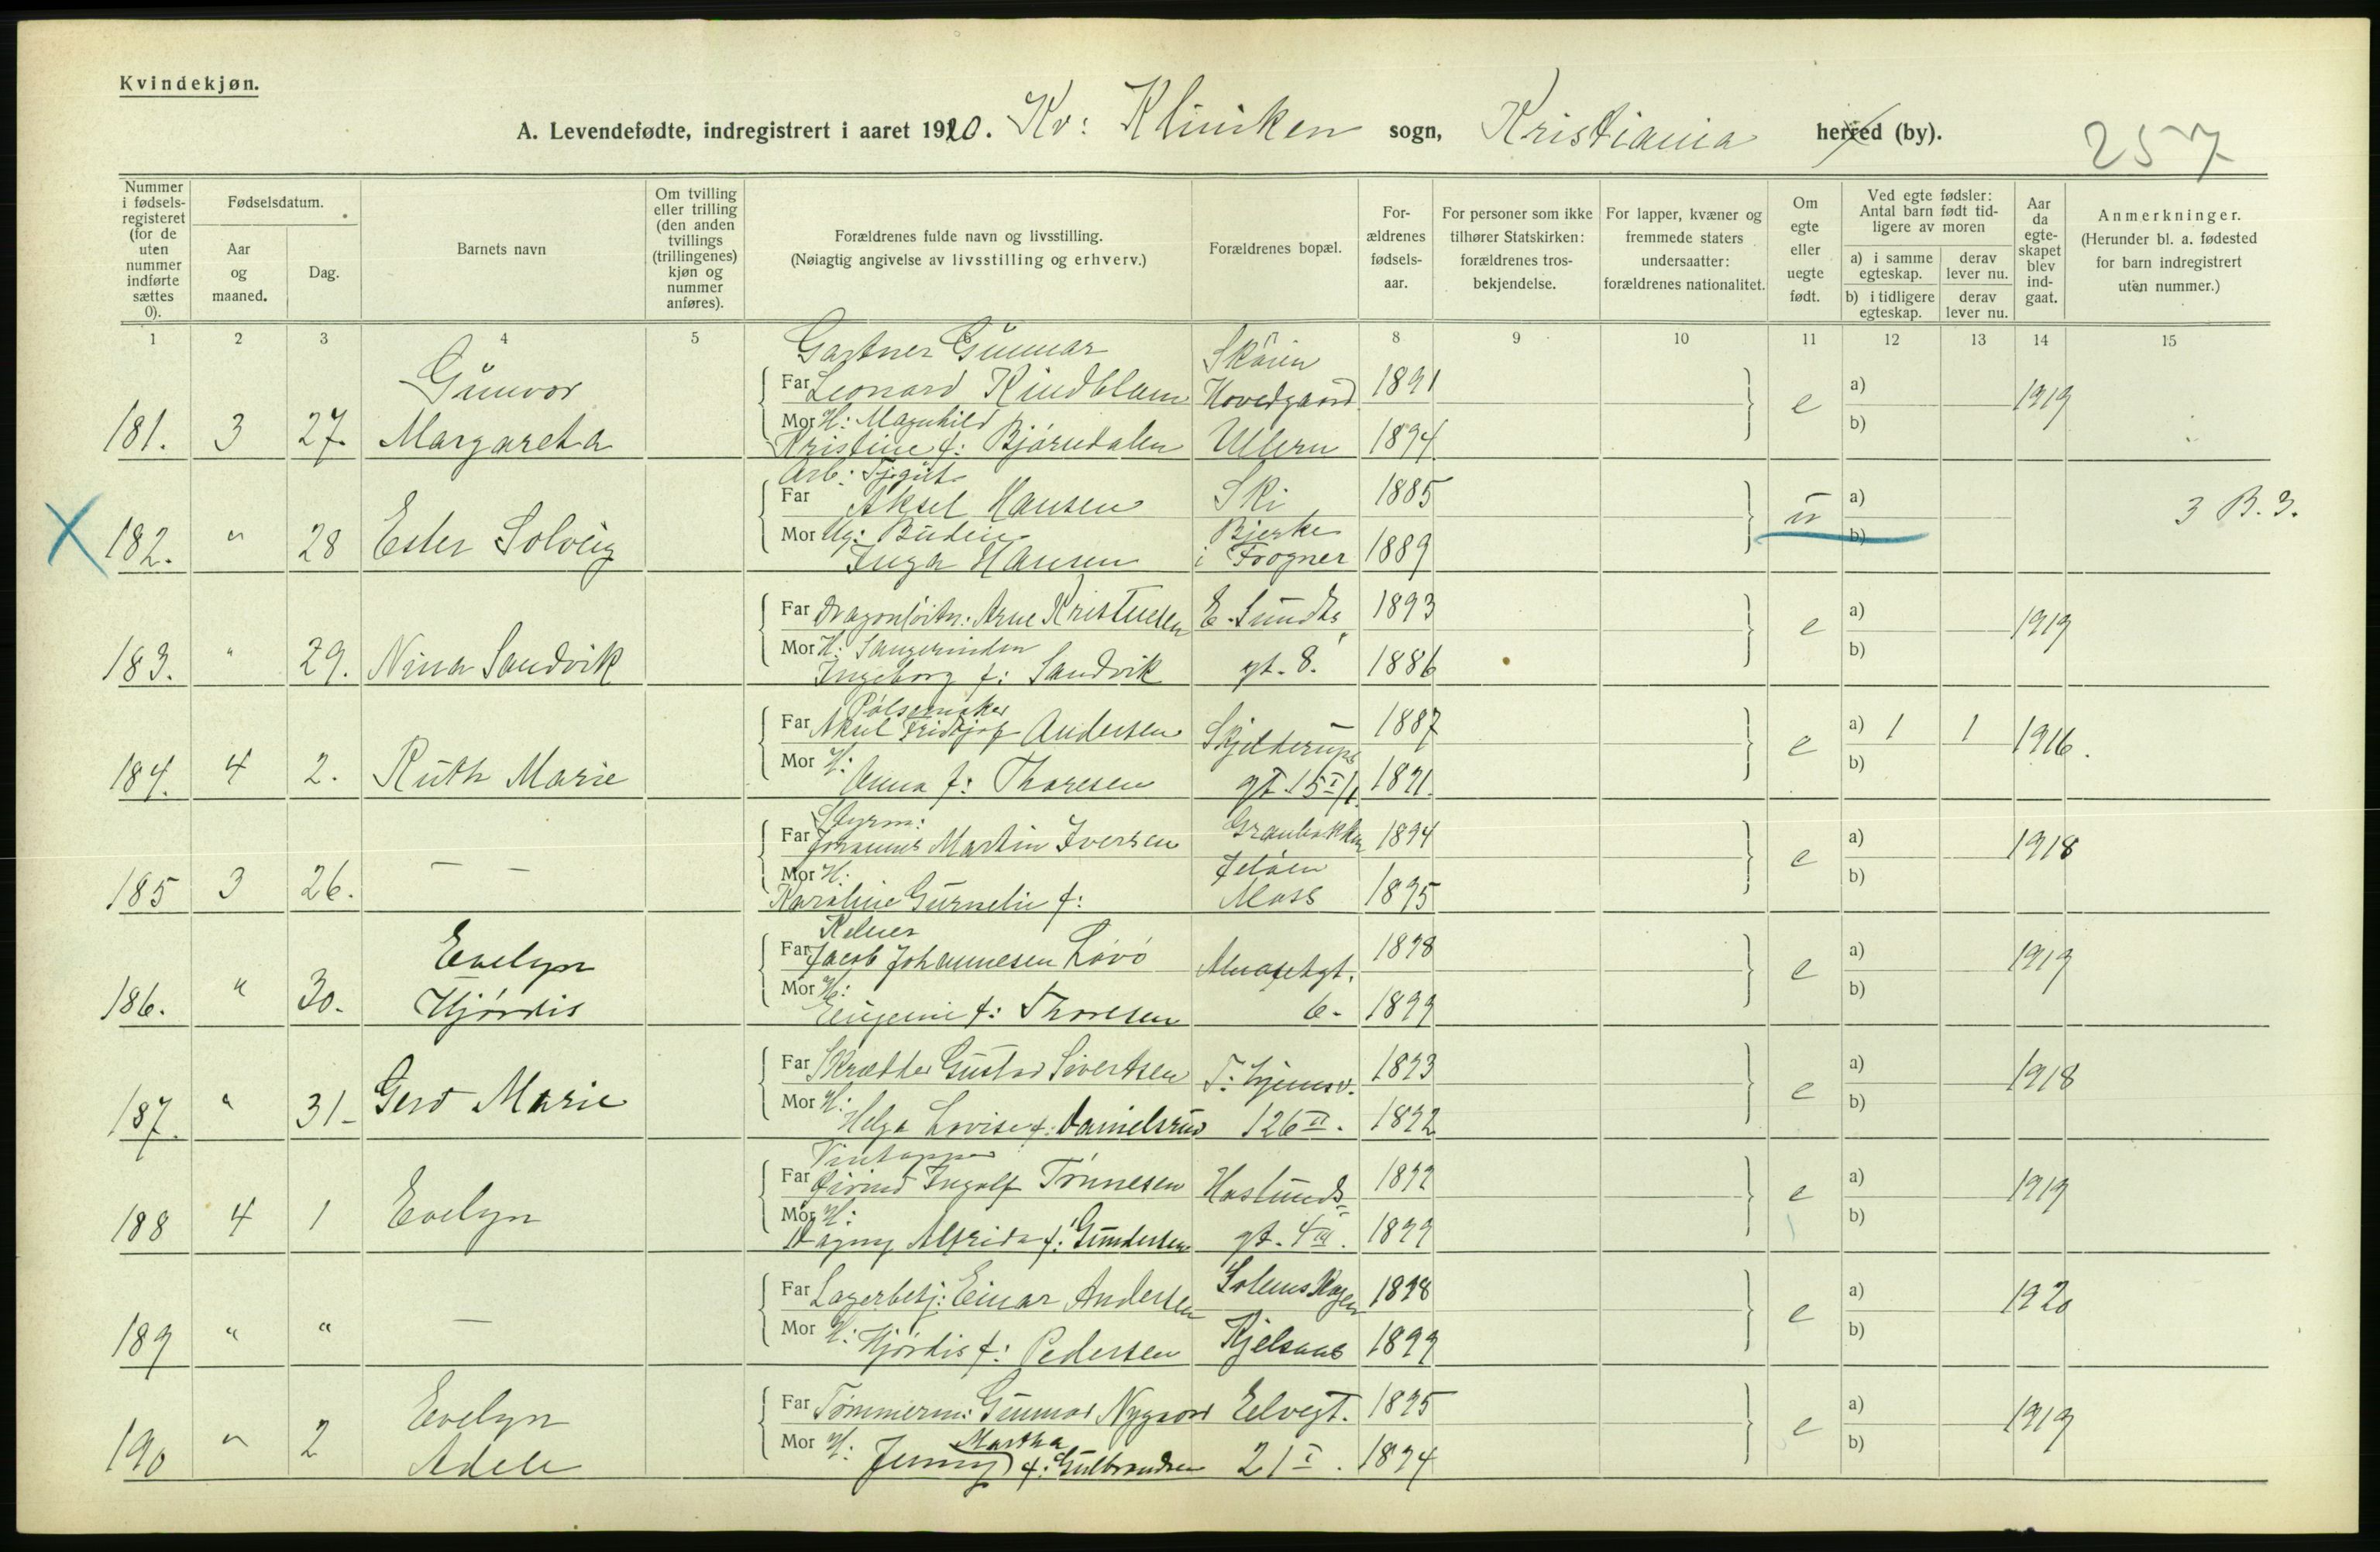 Kvindekjøn.
A. Levendefødte, indregistrert i aaret 1920. Kv: Kliniken sogn, Kristiania herred (by).
257
Nummer i fødsels-registeret (for de uten nummer indførte sættes 0).
Fødselsdatum.
Aar og maaned.
Dag.
Barnets navn
Om tvilling eller trilling (den anden tvillings (trillingenes) kjøn og nummer anføres).
Forældrenes fulde navn og livsstilling.
(Nøiagtig angivelse av livsstilling og erhverv.)
Forældrenes bopæl.
For-ældrenes fødsels-aar.
For personer som ikke tilhører Statskirken: forældrenes tros-bekjendelse.
For lapper, kvæner og fremmede staters undersaatter: forældrenes nationalitet.
Om egte eller uegte født.
Ved egte fødsler: Antal barn født tid-ligere av moren
a) i samme egteskap.
derav lever nu.
b) i tidligere egteskap.
derav lever nu.
Aar da egte-skapet blev ind-gaat.
Anmerkninger.
(Herunder bl. a. fødested for barn indregistrert uten nummer.)
1 2 3 4 5 6 8 9 10 11 12 13 14 15
Gartner Gunnar Skøien
Gunvor Far Leonard Kindblam Hovedgaard 1891 a) 1919
181. 3 27. Margareta Mor H: Magnhild e b)
Kristine f: Bjørndalen Ullern 1894
Arb: Tjgut
Far Aksel Hansen Ski 1885 a)
182. " 28 Ester Solveig Mor Ug: Budeie Bjerke u b) 3 B. 3.
Inga Hansen i Frogner 1889
Far Dragonløitn: Arne Kristensen E. Sundts 1893 a) 1919
183. " 29. Nina Sandvik Mor H: Sangerinden e b)
Ingeborg f: Sandvik gt. 8. 1886
Pølsemaker
Far Aksel Fridtjof Andersen Skjelderups 1887 a) 1 1 1916.
184. 4 2. Ruth Marie Mor H: e b)
Anna f: Thoresen gt. 15 I/1. 1891.
Styrm:
Far Johannes Martin Iversen Granbakken 1894 a) 1918
185 3 26. — — Mor H: Jeløen e b)
Karoline Gurnelie f: Moss 1895
Kelner
Evelyn Far Jacob Johannesen Løvö 1898 a) 1919
186. " 30. Hjørdis Mor H: e b)
Eugenie f: Thoresen 6. 1899
Far Skrædder Gustav Sivertsen T: hjemsv. 1893 a) 1918
187. " 31 Gerd Marie Mor H: e b)
Helga Lovise f: Danielsrud 126 II. 1892
Vintapper
Far Øivind Ingolf Tønnesen Haslunds 1892 a) 1919
188 4 1 Evelyn Mor H: e b)
Dagny Alfrida f: Gundersen gt. 4 III. 1899
Far Lagerbetj: Einar Andersen Solemskogen 1898 a) 1920
189 " " — Mor H: Hjørdis f: Pedersen Kjelsaas 1899 e b)
Evelyn Far Tømmerm: Gunnar Nygaard Elvegt. 1895 a) 1919
190 " 2 Adele Mor H: Jenny Martha f: Gulbrandsen 21 I. 1894 e b)